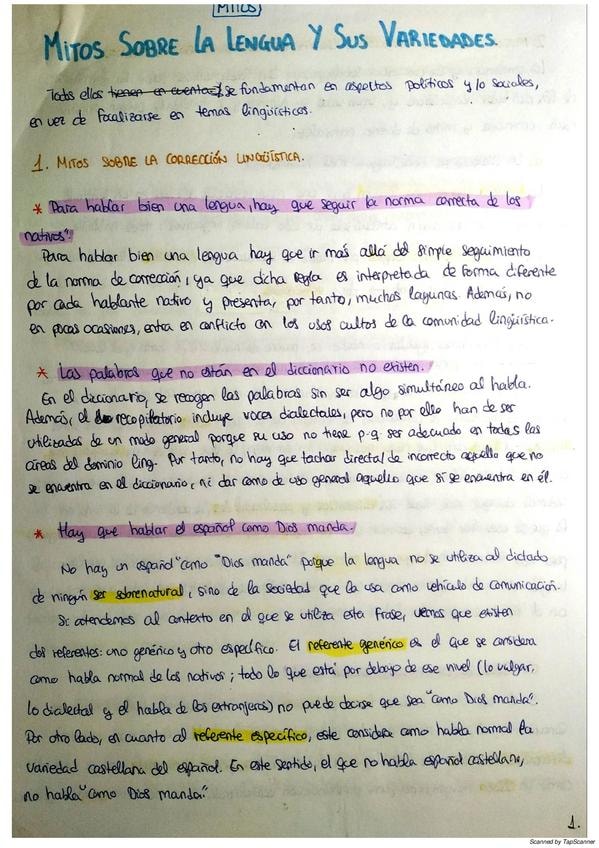 MITOS
MITOS SOBRE LA LENGUA Y SUS VARIEDADES.
Todos ellos tienen en cuenta se fundamentan en aspectos políticos y/o sociales,
en vez de focalizarse en temas lingüísticos.
1. MITOS SOBRE LA CORRECCIÓN LINGÜÍSTICA.
* "Para hablar bien una lengua, hay que seguir la norma correcta de los
nativos".
Para hablar bien una lengua hay que ir más allá del simple seguimiento
de la norma de corrección, ya que dicha regla es interpretada de forma diferente
por cada hablante nativo y presenta, por tanto, muchas lagunas. Además, no
en pocas ocasiones, entra en conflicto con los usos cultos de la comunidad lingüística.
* Las palabras que no están en el diccionario no existen.
En el diccionario, se recogen las palabras sin ser algo simultáneo al habla.
Además, el recopilatorio incluye voces dialectales, pero no por ello han de ser
utilizadas de un modo general porque su uso no tiene p-q ser adecuado en todas las
áreas del dominio ling. Por tanto, no hay que tachar directal de incorrecto aquello que no
se encuentra en el diccionario, ni dar como de uso general aquello que sí se encuentra en él.
* Hay que hablar el español como Dios manda.
No hay un español "como "Dios manda" porque la lengua no se utiliza al dictado
de ningún ser sobrenatural, sino de la sociedad que la usa como vehículo de comunicación.
Si atendemos al contexto en el que se utiliza esta frase, vemos que existen
dos referentes: uno genérico y otro específico. El referente genérico es el que se considera
como habla normal de los nativos; todo lo que está por debajo de ese nivel (lo vulgar,
lo dialectal y el habla de los extranjeros) no puede decirse que sea "como Dios manda".
Por otro lado, en cuanto al referente específico, este considera como habla normal la
variedad castellana del español. En este sentido, el que no habla español castellano,
no habla "como Dios manda".
1.
Scanned by TapScanner